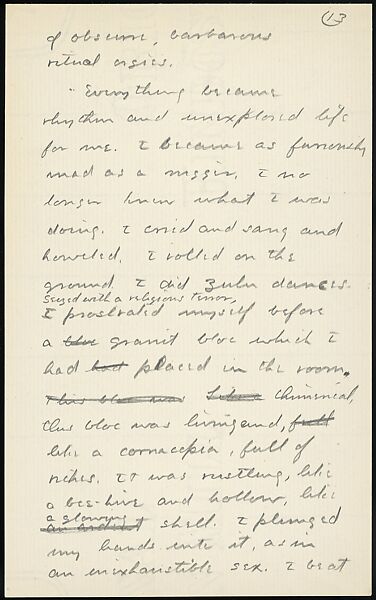 13
of obscure, barbarous
ritual orgies.
"Everything became
rhythm and unexplored life
for me. I became as furiously
mad as a nigger. I no
longer knew what I was
doing. I cried and sang and
howled. I rolled on the
ground. I did Zulu dances.
Seized with a religious terror,
I prostrated myself before
a bloc granit bloc which I
had had placed in the room.
This bloc was like a chimerical,
this bloc was living and, full
like a cornucopia, full of
riches. It was rustling, like
a bee-hive and hollow, like
a glowing
an ardent shell. I plunged
my hands into it, as in
an inexhaustible sex. I beat